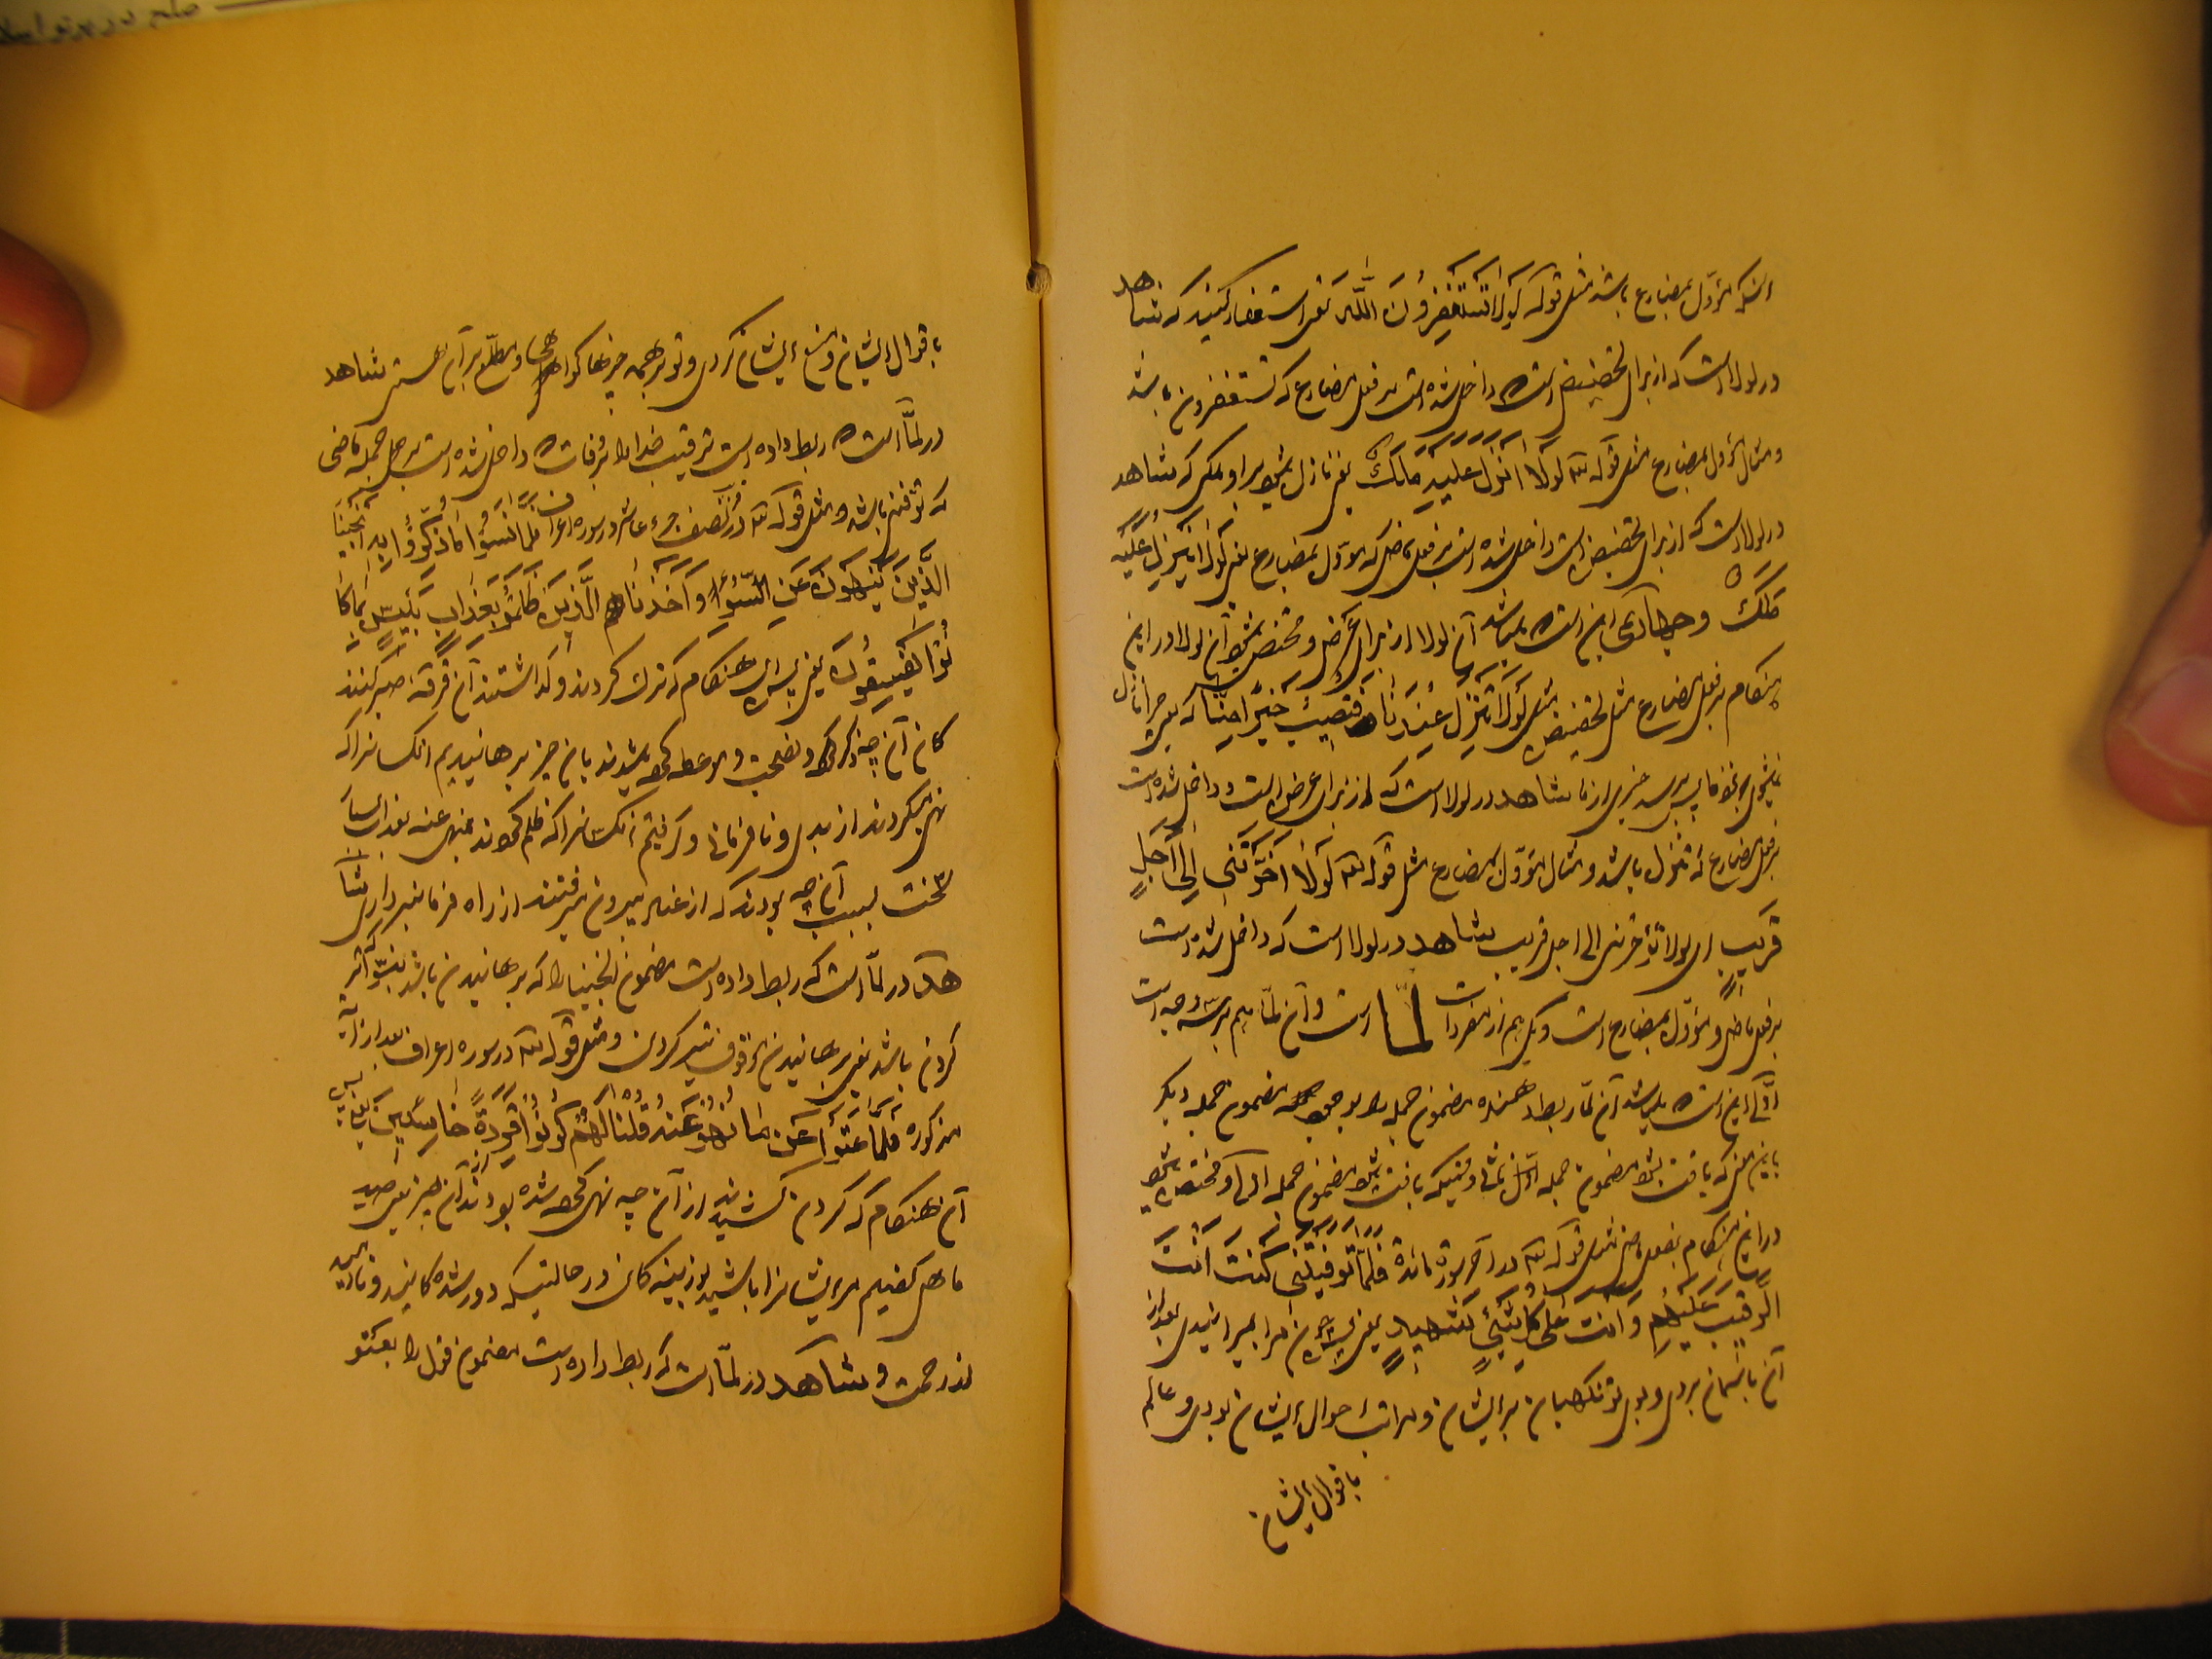 آنکه مؤول بمضارع باشد مثل قوله لَوْلَا تَسْتَغْفِرُونَ اللَّهَ یعنی استغفار کنید که شاهد
در لولا است که از برای تحضیض است داخل شده است بر فعل مضارع که تستغفرون باشد
و مثال مؤول بمضارع مثل قوله تعالی لَوْلَا اُنْزِلَ عَلَیْهِ مَلَکٌ یعنی نازل بشود بر او ملکی که شاهد
در لولا است که از برای تحضیض است داخل شده است بر فعل ماضی که مؤول بمضارع یعنی لَوْلَا یُنْزَلُ عَلَیْهِ
مَلَکٌ و این است میباشد آن لولا از برای عرض و مختص میشود آن لولا در این
هنگام بر فعل مضارع مثل تحضیض مثل لَوْلَا تَنْزِلُ عِنْدَنَا فَتُصِیبَ خَیْرًا مِنَّا که یعنی چرا نازل
نمیشوی نزد ما پس برسد خیری از ما شاهد در لولا است که از برای عرض است و داخل شده است
بر فعل مضارع که تنزل باشد و مثال مؤول بمضارع مثل قوله تعالی لَوْلَا اَخَّرْتَنِی اِلَی اَجَلٍ
قَرِیبٍ ای لولا تؤخرنی الی اجل قریب شاهد در لولا است که داخل شده است
بر فعل ماضی و مؤول بمضارع است و یکی هم از مفردات لمّا است و آن لمّا هم بر سه وجه است
اوّل این است میباشد آن لمّا ربط دهنده مضمون جمله را بوجود مضمون جمله دیگر
باین معنی که یافت بشود مضمون جمله اوّل ثانی وقتیکه یافت بشود مضمون جمله اولی و مختص میشود
در این هنگام بفعل ماضی مثل قوله تعالی در آخر سوره مائده فَلَمَّا تَوَفَّیْتَنِی کُنْتَ اَنْتَ
الرَّقِیبَ عَلَیْهِمْ وَ اَنْتَ عَلَی کُلِّ شَیْئٍ شَهِیدٌ یعنی پس چون مرا بمیرانیدی بعد از
آن باسمان بردی و بودی تو نگهبان بر ایشان و مراقب احوال ایشان بودی و عالم
باقوال ایشان
باقوال ایشان و منع ایشان کردی و تو بر همه چیزها گواهی و مطلع بر آن هستی شاهد
در لمّا است ربط داده است ترقیب خدا را بوفات داخل شده است بر جمله ماضی
که توفیتنی باشد و مثل قوله تعالی در نصف جزء عاشر در سوره اعراف فَلَمَّا نَسُوا مَا ذُکِّرُوا بِهِ اَنْجَیْنَا
الَّذِینَ یَنْهَوْنَ عَنِ السُّوءِ وَ اَخَذْنَا الَّذِینَ ظَلَمُوا بِعَذَابٍ بَئِیسٍ بِمَا کَا
نُوا یَفْسُقُونَ یعنی پس آن هنگام که ترک کردند و گذاشتند آن فرقه صید کنند
کان آن چه ذکر کرده و نصیحت و موعظه کرده شدند بان چیز برهانیدیم انکسانرا که
نهی میکردند از بدی و نافرمانی و گرفتیم انکسانرا که ظلم کرده اند بمنهی عنه بعذاب بسیار
سخت بسبب آن چه بودند که از عناد بیرون میرفتند از راه فرمانبرداری شا
هد در لمّا است که ربط داده است مضمون انجینا را که برهانیدن باشد بنسو که اثر
کردن باشد یعنی برهانیدن موقوف نسیر کردن و مثل قوله تعالی در سوره اعراف بعد از آیه
مذکوره فَلَمَّا عَتَوْا عَنْ مَا نُهُوا عَنْهُ قُلْنَا لَهُمْ کُونُوا قِرَدَةً خَاسِئِینَ یعنی پس
آن هنگام که گردن کشیدند از آن چه نهی کرده شده بودند از آن چیز یعنی صید
ماهی گفتیم مر ایشانرا باشید بوزینه کان در حالتیکه دور شده کانید و ناامید
از رحمت و شاهد در لمّا است که ربط داده است مضمون قول را بعتو